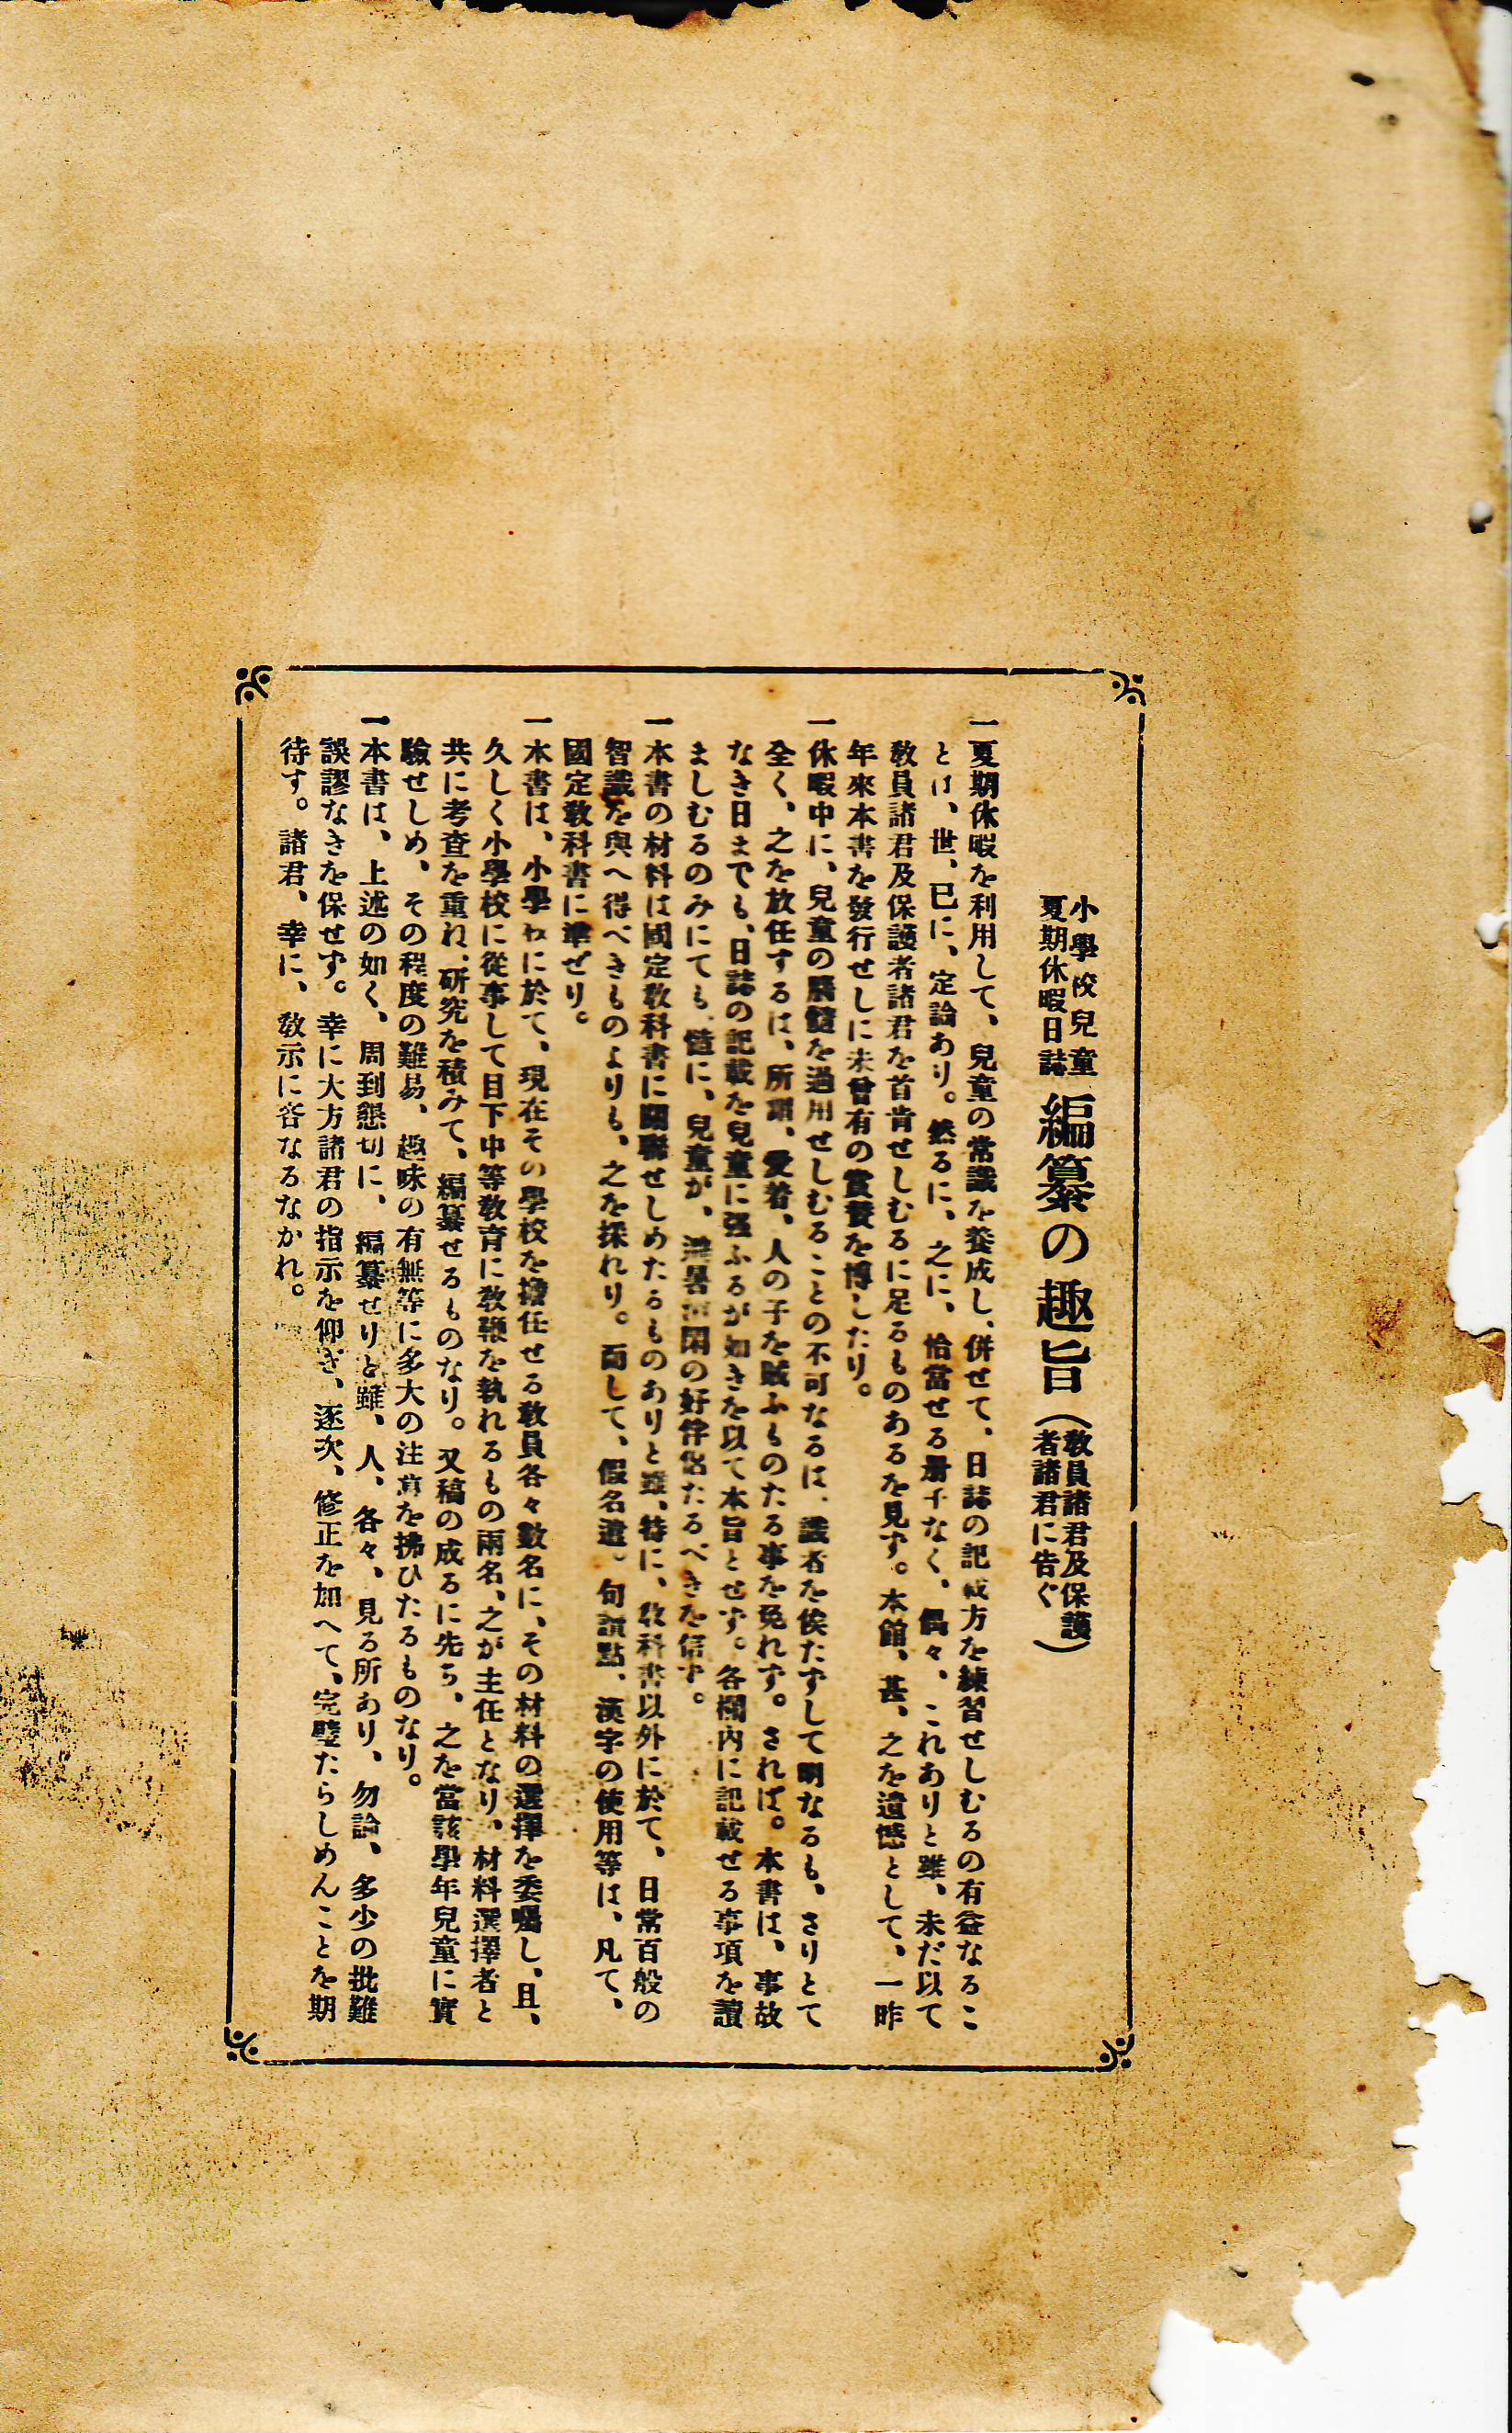 小學校兒童
夏期休暇日誌
編纂の趣旨
（教員諸君及保護
者諸君に告ぐ）
一夏期休暇を利用して、兒童の常識を養成し、併せて、日誌の記載方を練習せしむるの有益なるこ
とは、世、已に、定論あり。然るに、之に、恰當せる册子なく、偶々、これありと雖、未だ以て
教員諸君及保護者諸君を首肯せしむるに足るものあるを見ず。本館、甚、之を遺憾として、一昨
年來本書を發行せしに未曾有の賞賛を博したり。
一休暇中に、兒童の腦髓を過用せしむることの不可なるは、識者を俟たずして明なるも、さりとて
全く、之を放任するは、所謂、愛着、人の子を賊ふものたる事を免れず。されば。本書は、事故
なき日までも、日誌の記載を兒童に强ふるが如きを以て本旨とせず。各欄内に記載せる事項を讀
ましむるのみにても、慥に、兒童が、避暑 閑の好伴侶たるべきを信ず。
一本書の材料は國定敎科書に關聯せしめたるものありと雖、特に、敎科書以外に於て、日常百般の
智識を與へ得べきものよりも、之を採れり。而して、假名遣。句讀點、漢字の使用等は、凡て、
國定敎科書に準ぜり。
一本書は、小學校に於て、現在その學校を擔任せる敎員各々數名に、その材料の選擇を委囑し、且、
久しく小學校に從事して目下中等敎育に敎鞭を執れるもの兩名、之が主任となり、材料選擇者と
共に考査を重ね、研究を積みて、編纂せるものなり。又稿の成るに先ち、之を當該學年兒童に實
驗せしめ、その程度の難易、趣味の有無等に多大の注意を拂ひたるものなり。
一本書は、上述の如く、周到懇切に、編纂せりと雖、人、各々、見る所あり、勿論、多少の批難
誤謬なきを保せず。幸に大方諸君の指示を仰ぎ、逐次、修正を加へて、完璧たらしめんことを期
待す。諸君、幸に、敎示に吝なるなかれ。